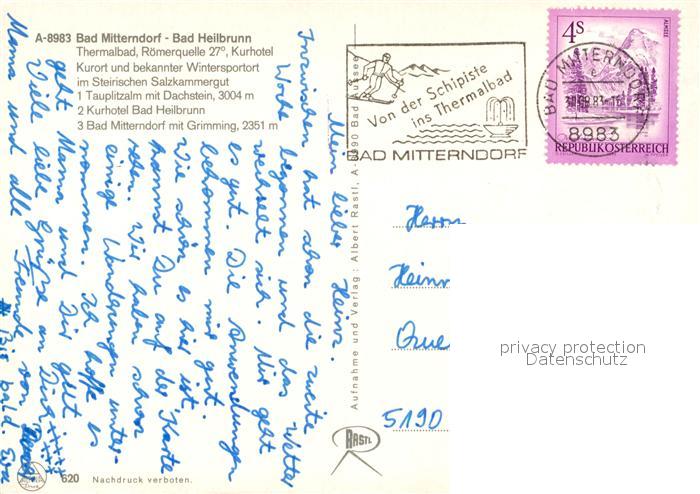 A-8983 Bad Mitterndorf - Bad Heilbrunn
Thermalbad, Römerquelle 27°, Kurhotel
Kurort und bekannter Wintersportort
im Steirischen Salzkammergut
1 Tauplitzalm mit Dachstein, 3004 m
2 Kurhotel Bad Heilbrunn
3 Bad Mitterndorf mit Grimming, 2351 m
Von der Schipiste
ins Thermalbad
BAD MITTERNDORF
4S
ALMSEE
REPUBLIK ÖSTERREICH
BAD MITTERNDORF
8983
Mein lieber Heinz.
Inzwischen hat schon die zweite
Woche begonnen und das Wetter
wechselt sich. Mir geht
es gut. Die Anwendungen
bekommen mir gut.
Wie schön es hier ist
kannst Du auf der Karte
sehen. Wir haben schon
einige Wanderungen unter-
nommen. Ich hoffe es
geht Mama und Dir gut
Viele liebe Grüße an Dich
Mama und alle Freunde von
Bis bald. Eva
Aufnahme und Verlag: Albert Rastl, A-8990 Bad Aussee
Herrn
Heinr
Que
5190
privacy protection
Datenschutz
RASTL
620 Nachdruck verboten.